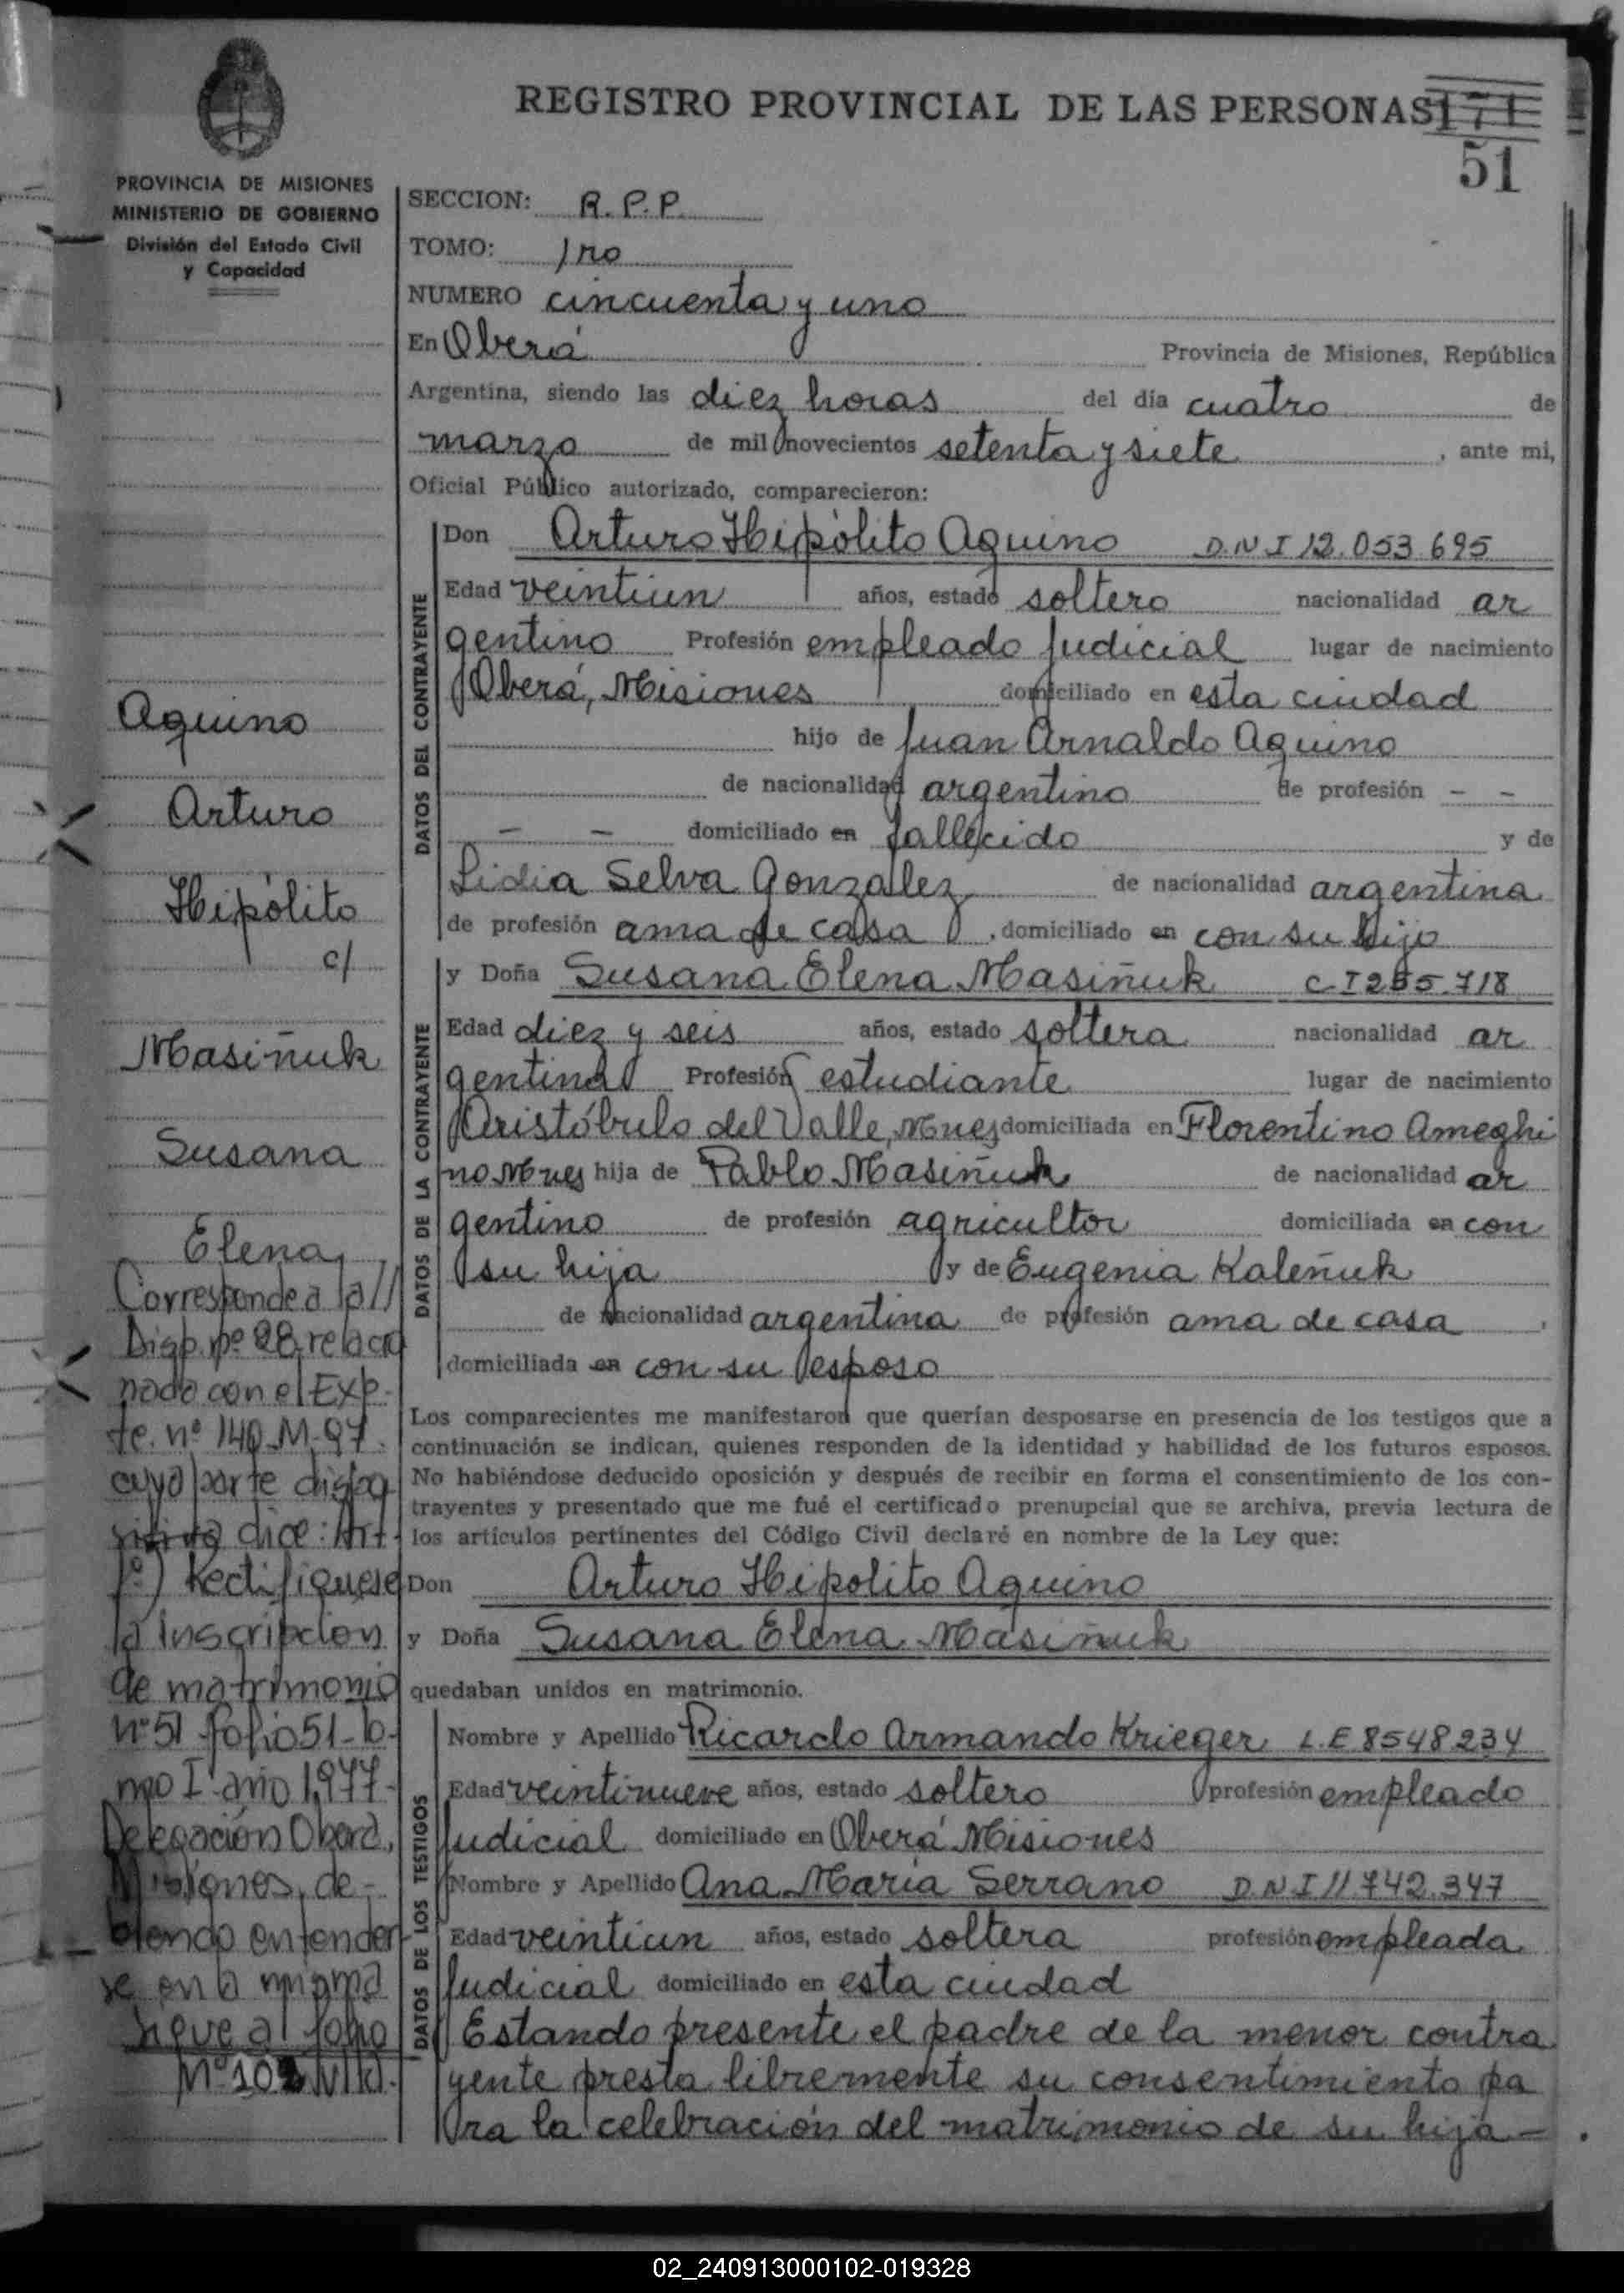 REGISTRO PROVINCIAL DE LAS PERSONAS 171
51
PROVINCIA DE MISIONES
MINISTERIO DE GOBIERNO
División del Estado Civil
y Capacidad
SECCION: R.P.P.
TOMO: 1ro
NUMERO cincuenta y uno
En Oberá Provincia de Misiones, República
Argentina, siendo las diez horas del día cuatro de
marzo de mil novecientos setenta y siete, ante mi,
Oficial Público autorizado, comparecieron:
DATOS DEL CONTRAYENTE
Don Arturo Hipólito Aquino D.N.I 12.053.695
Edad veintiun años, estado soltero nacionalidad ar
gentino Profesión empleado judicial lugar de nacimiento
Oberá, Misiones domiciliado en esta ciudad
hijo de Juan Arnaldo Aquino
de nacionalidad argentino de profesión - -
- - domiciliado en fallecido y de
Lidia Selva Gonzalez de nacionalidad argentina
de profesión ama de casa, domiciliado en con su hijo
DATOS DE LA CONTRAYENTE
y Doña Susana Elena Masiñuk C.I 255.718
Edad diez y seis años, estado soltera nacionalidad ar
gentina Profesión estudiante lugar de nacimiento
Aristóbulo del Valle, Mnes domiciliada en Florentino Ameghi
no Mnes hija de Pablo Masiñuk de nacionalidad ar
gentino de profesión agricultor domiciliada en con
su hija y de Eugenia Kaleñuk
de nacionalidad argentina de profesión ama de casa,
domiciliada en con su esposo
Los comparecientes me manifestaron que querían desposarse en presencia de los testigos que a
continuación se indican, quienes responden de la identidad y habilidad de los futuros esposos.
No habiéndose deducido oposición y después de recibir en forma el consentimiento de los con-
trayentes y presentado que me fué el certificado prenupcial que se archiva, previa lectura de
los artículos pertinentes del Código Civil declaré en nombre de la Ley que:
Don Arturo Hipolito Aquino
y Doña Susana Elena Masiñuk
quedaban unidos en matrimonio.
DATOS DE LOS TESTIGOS
Nombre y Apellido Ricardo Armando Krieger L.E 8548234
Edad veintinueve años, estado soltero profesión empleado
judicial domiciliado en Oberá Misiones
Nombre y Apellido Ana María Serrano D.N.I 11742.347
Edad veintiun años, estado soltera profesión empleada
judicial domiciliado en esta ciudad
Estando presente el padre de la menor contra
yente presta libremente su consentimiento pa
ra la celebración del matrimonio de su hija -
Aquino
Arturo
Hipólito
c/
Masiñuk
Susana
Elena
Corresponde a la //
Disp. nº 28 relacio
nado con el Exp-
te. nº 140 M-97.
cuya parte dispo
sitiva dice: Art-
1º) Rectifiquese
la inscripcion
de matrimonio
nº 51 folio 51-to-
mo I año 1,977-
Delegación Oberá,
Misiones, de-
biendo entender
se en la misma
sigue al folio
Nº 102 Vlta.
02_240913000102-019328